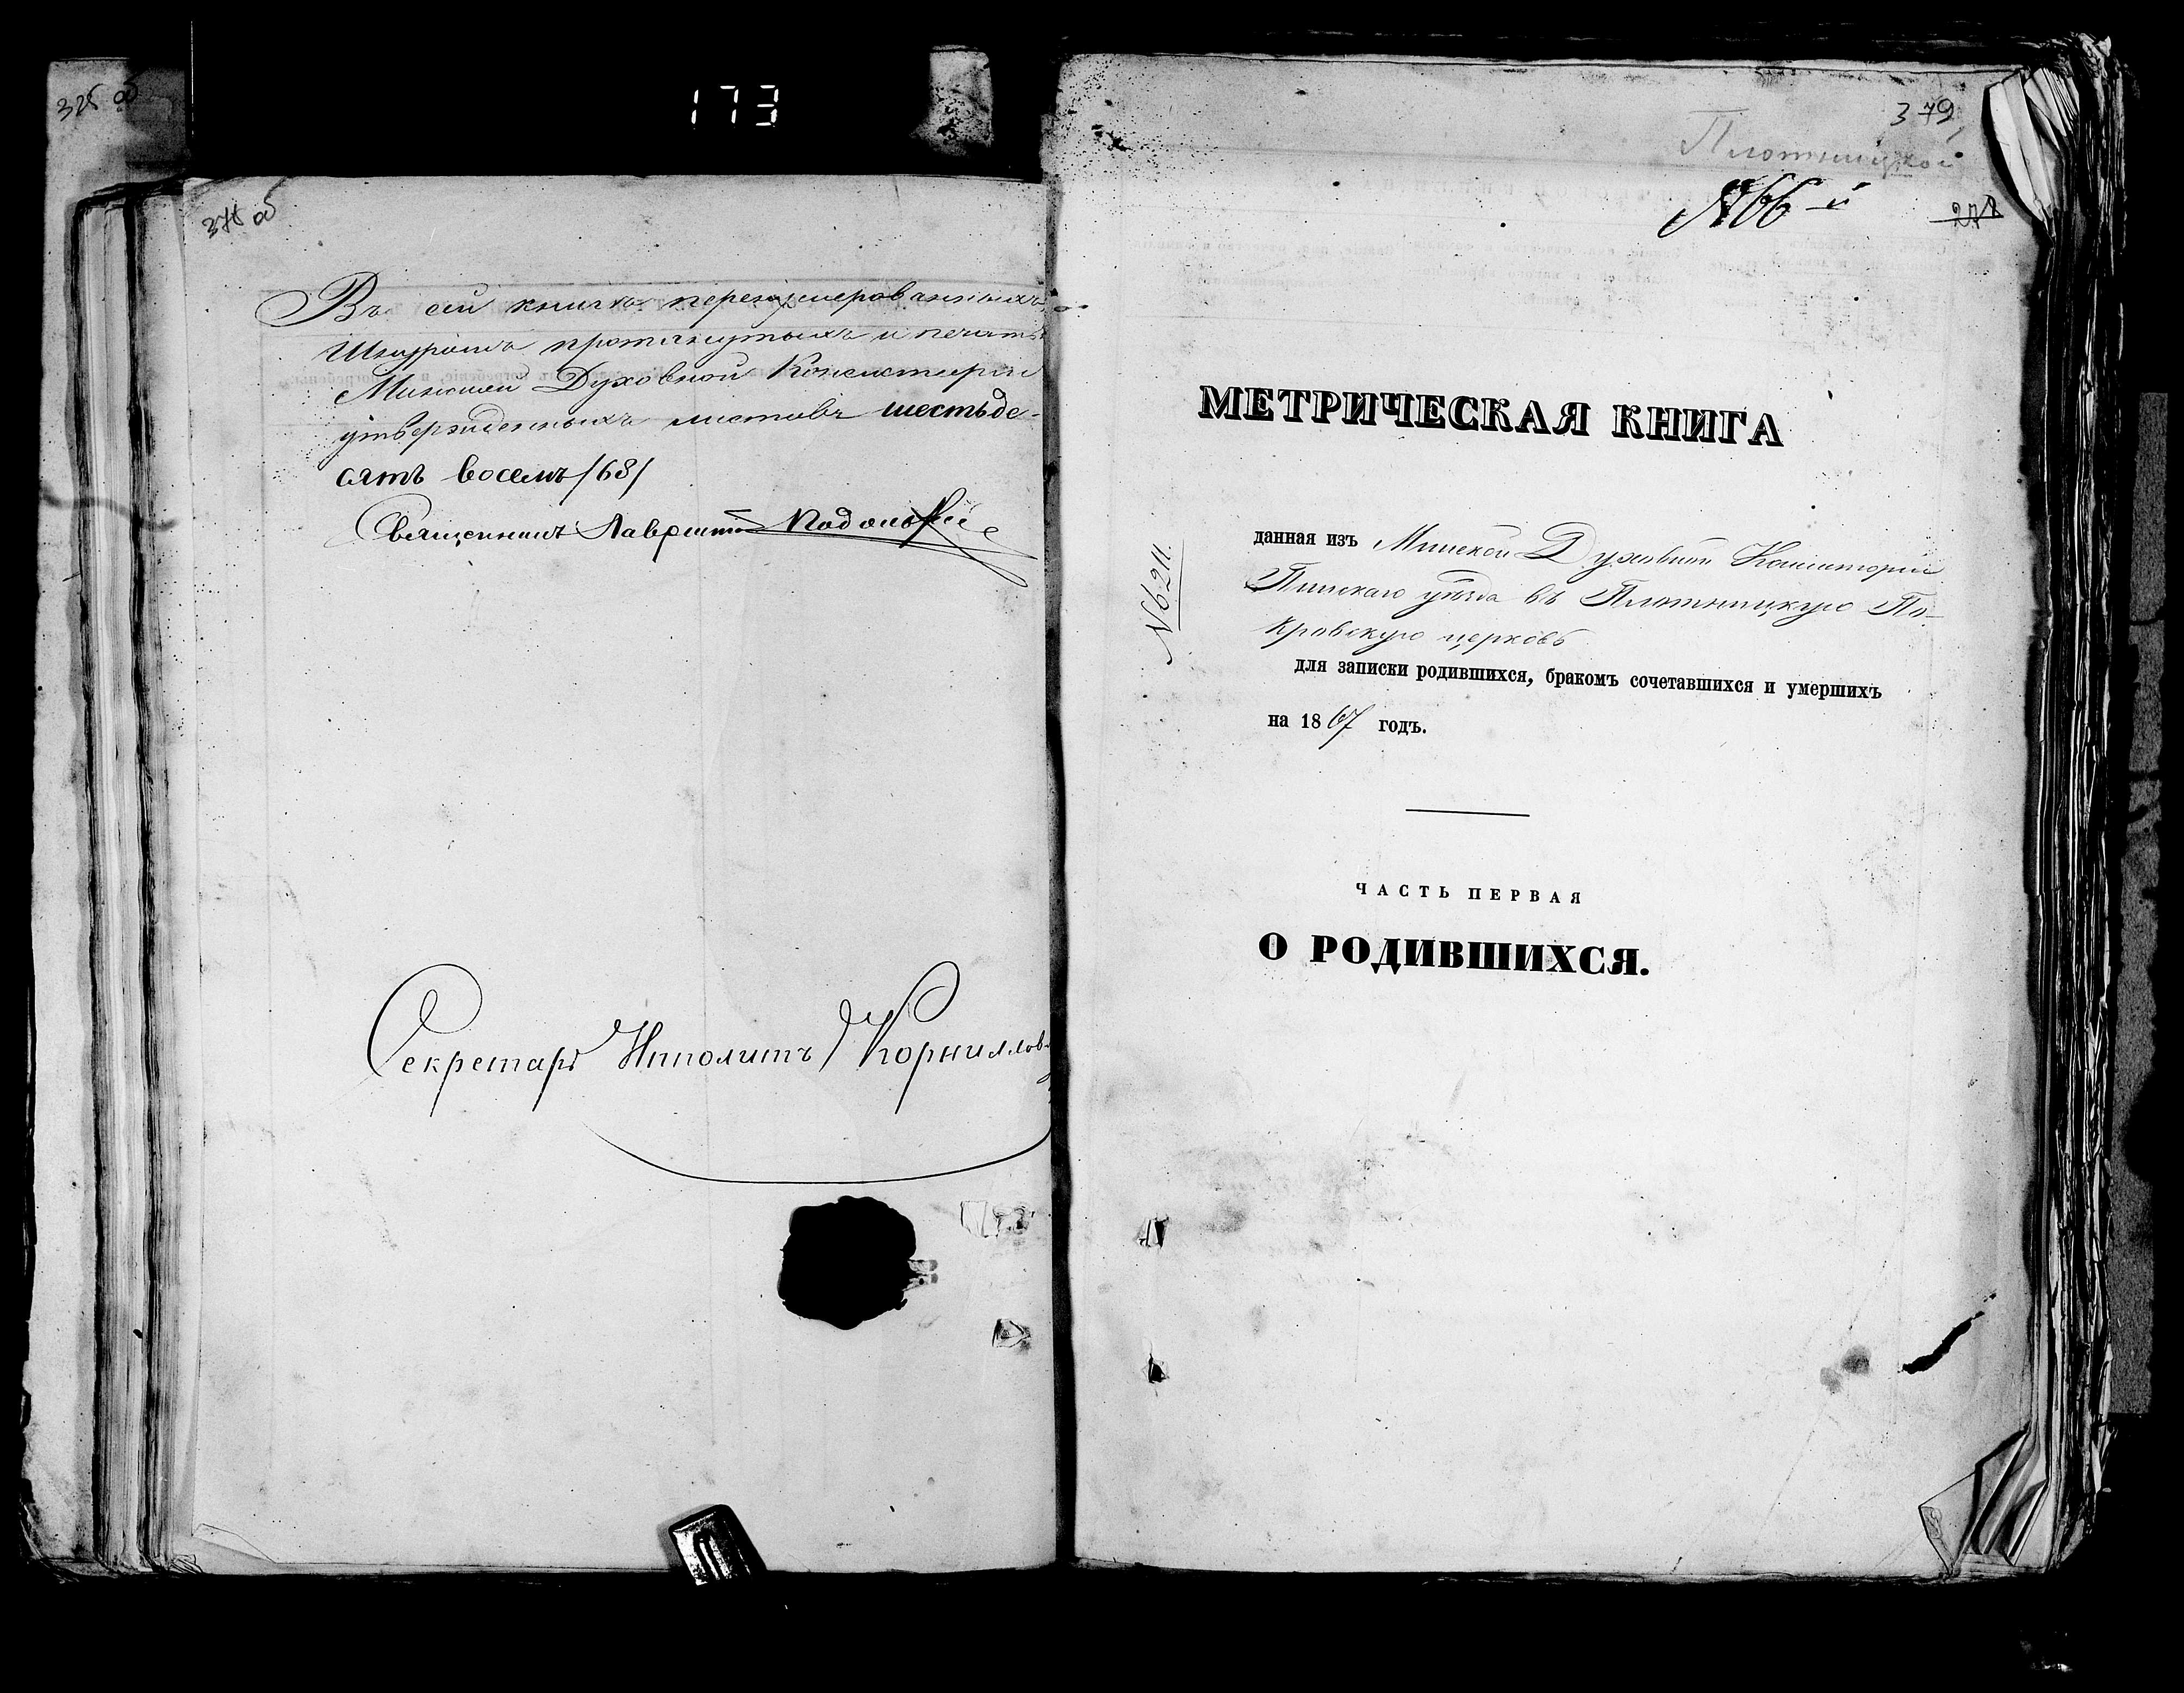 173
378 об
Въ сей книгѣ перенумерованныхъ
Шнуромъ протянутыхъ и печатью
Минской Духовной Консисторіи
утвержденныхъ листовъ шестьде-
сятъ восемъ /68/
Священникъ Лаврентій Подольскій
Секретарь Ипполитъ Корниллов
379
Плотницкой
№ 66 й
МЕТРИЧЕСКАЯ КНИГА
№ 6211.
данная изъ Минской Духовной Консисторіи
Пинскаго уѣзда въ Плотницкую По-
кровскую церковь
для записки родившихся, бракомъ сочетавшихся и умершихъ
на 1867 годъ.
ЧАСТЬ ПЕРВАЯ
О РОДИВШИХСЯ.